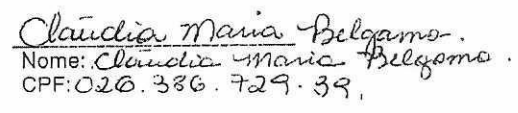 Claudia Maria Belgamo.
Nome: Claudia Maria Belgamo.
CPF: 026.386.729.39.